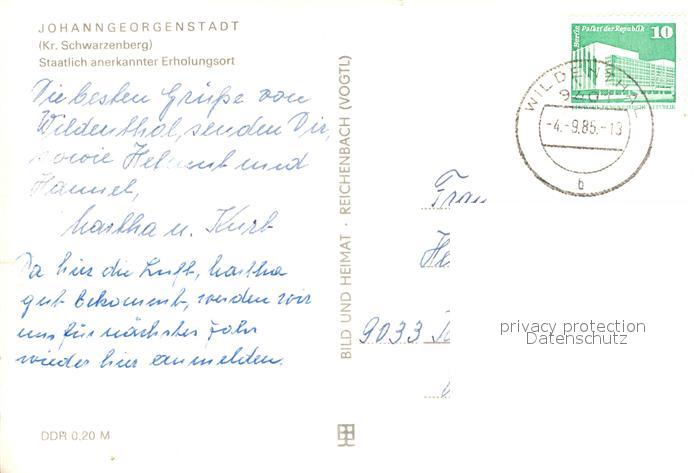 JOHANNGEORGENSTADT
(Kr. Schwarzenberg)
Staatlich anerkannter Erholungsort
Die besten Grüße von
Wildenthal, senden Dir,
sowie Helmut und
Hannel,
Martha u. Kurt
Da hier die Luft, Martha
gut bekommt, werden wir
uns für nächstes Jahr
wieder hier anmelden.
DDR 0,20 M
BILD UND HEIMAT · REICHENBACH (VOGTL)
Berlin Palast der Republik
10
WILDENTHAL
-4.-9.85.-13
b
Frau
He
9033
privacy protection
Datenschutz